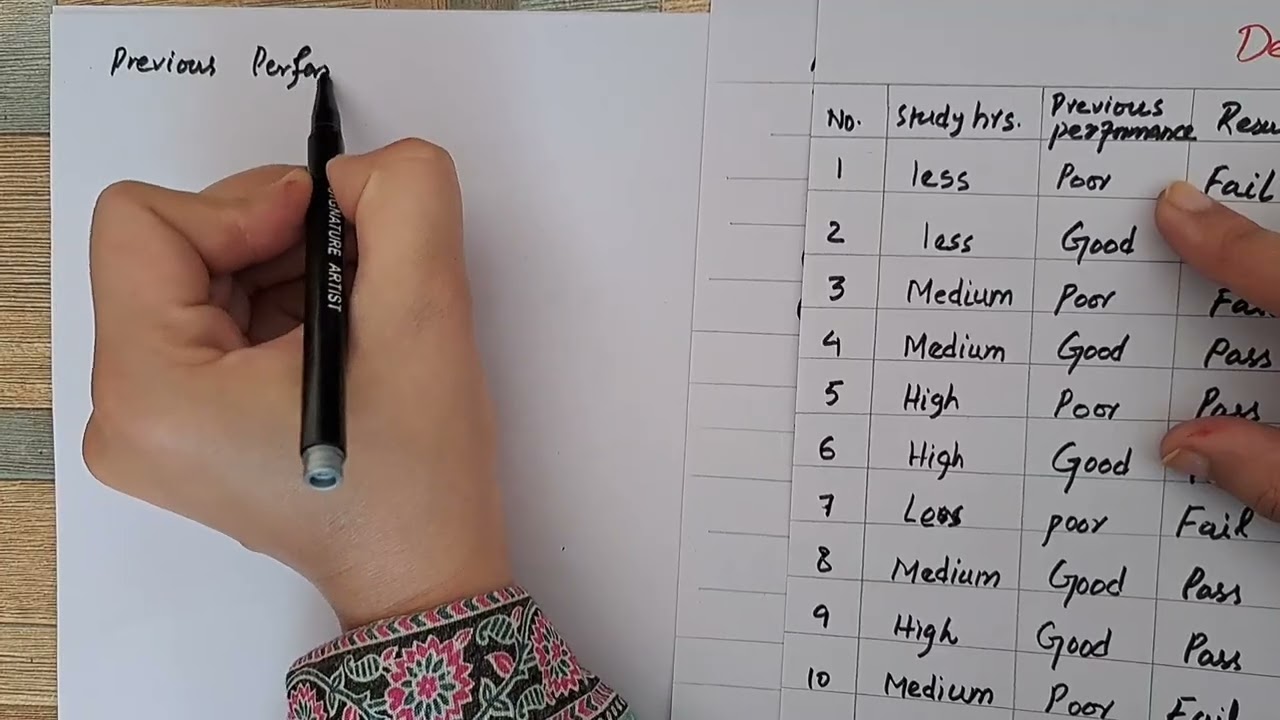 Previous Perfor
SIGNATURE ARTIST
De
No. Study hrs. Previous performance Resu
1 less Poor Fail
2 less Good
3 Medium Poor Fai
4 Medium Good Pass
5 High Poor Pass
6 High Good
7 Less poor Fail
8 Medium Good Pass
9 High Good Pass
10 Medium Poor Fail